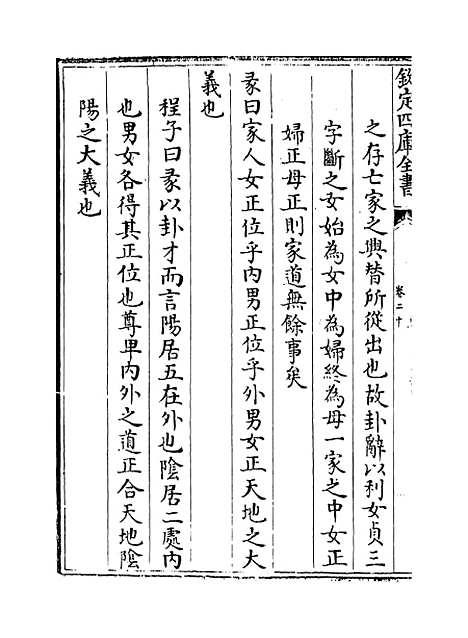 欽定四庫全書
卷二十
之存亡家之興替所從出也故卦辭以利女貞三
字斷之女始為女中為婦終為母一家之中女正
婦正母正則家道無餘事矣
彖曰家人女正位乎內男正位乎外男女正天地之大
義也
程子曰彖以卦才而言陽居五在外也陰居二處內
也男女各得其正位也尊卑內外之道正合天地陰
陽之大義也